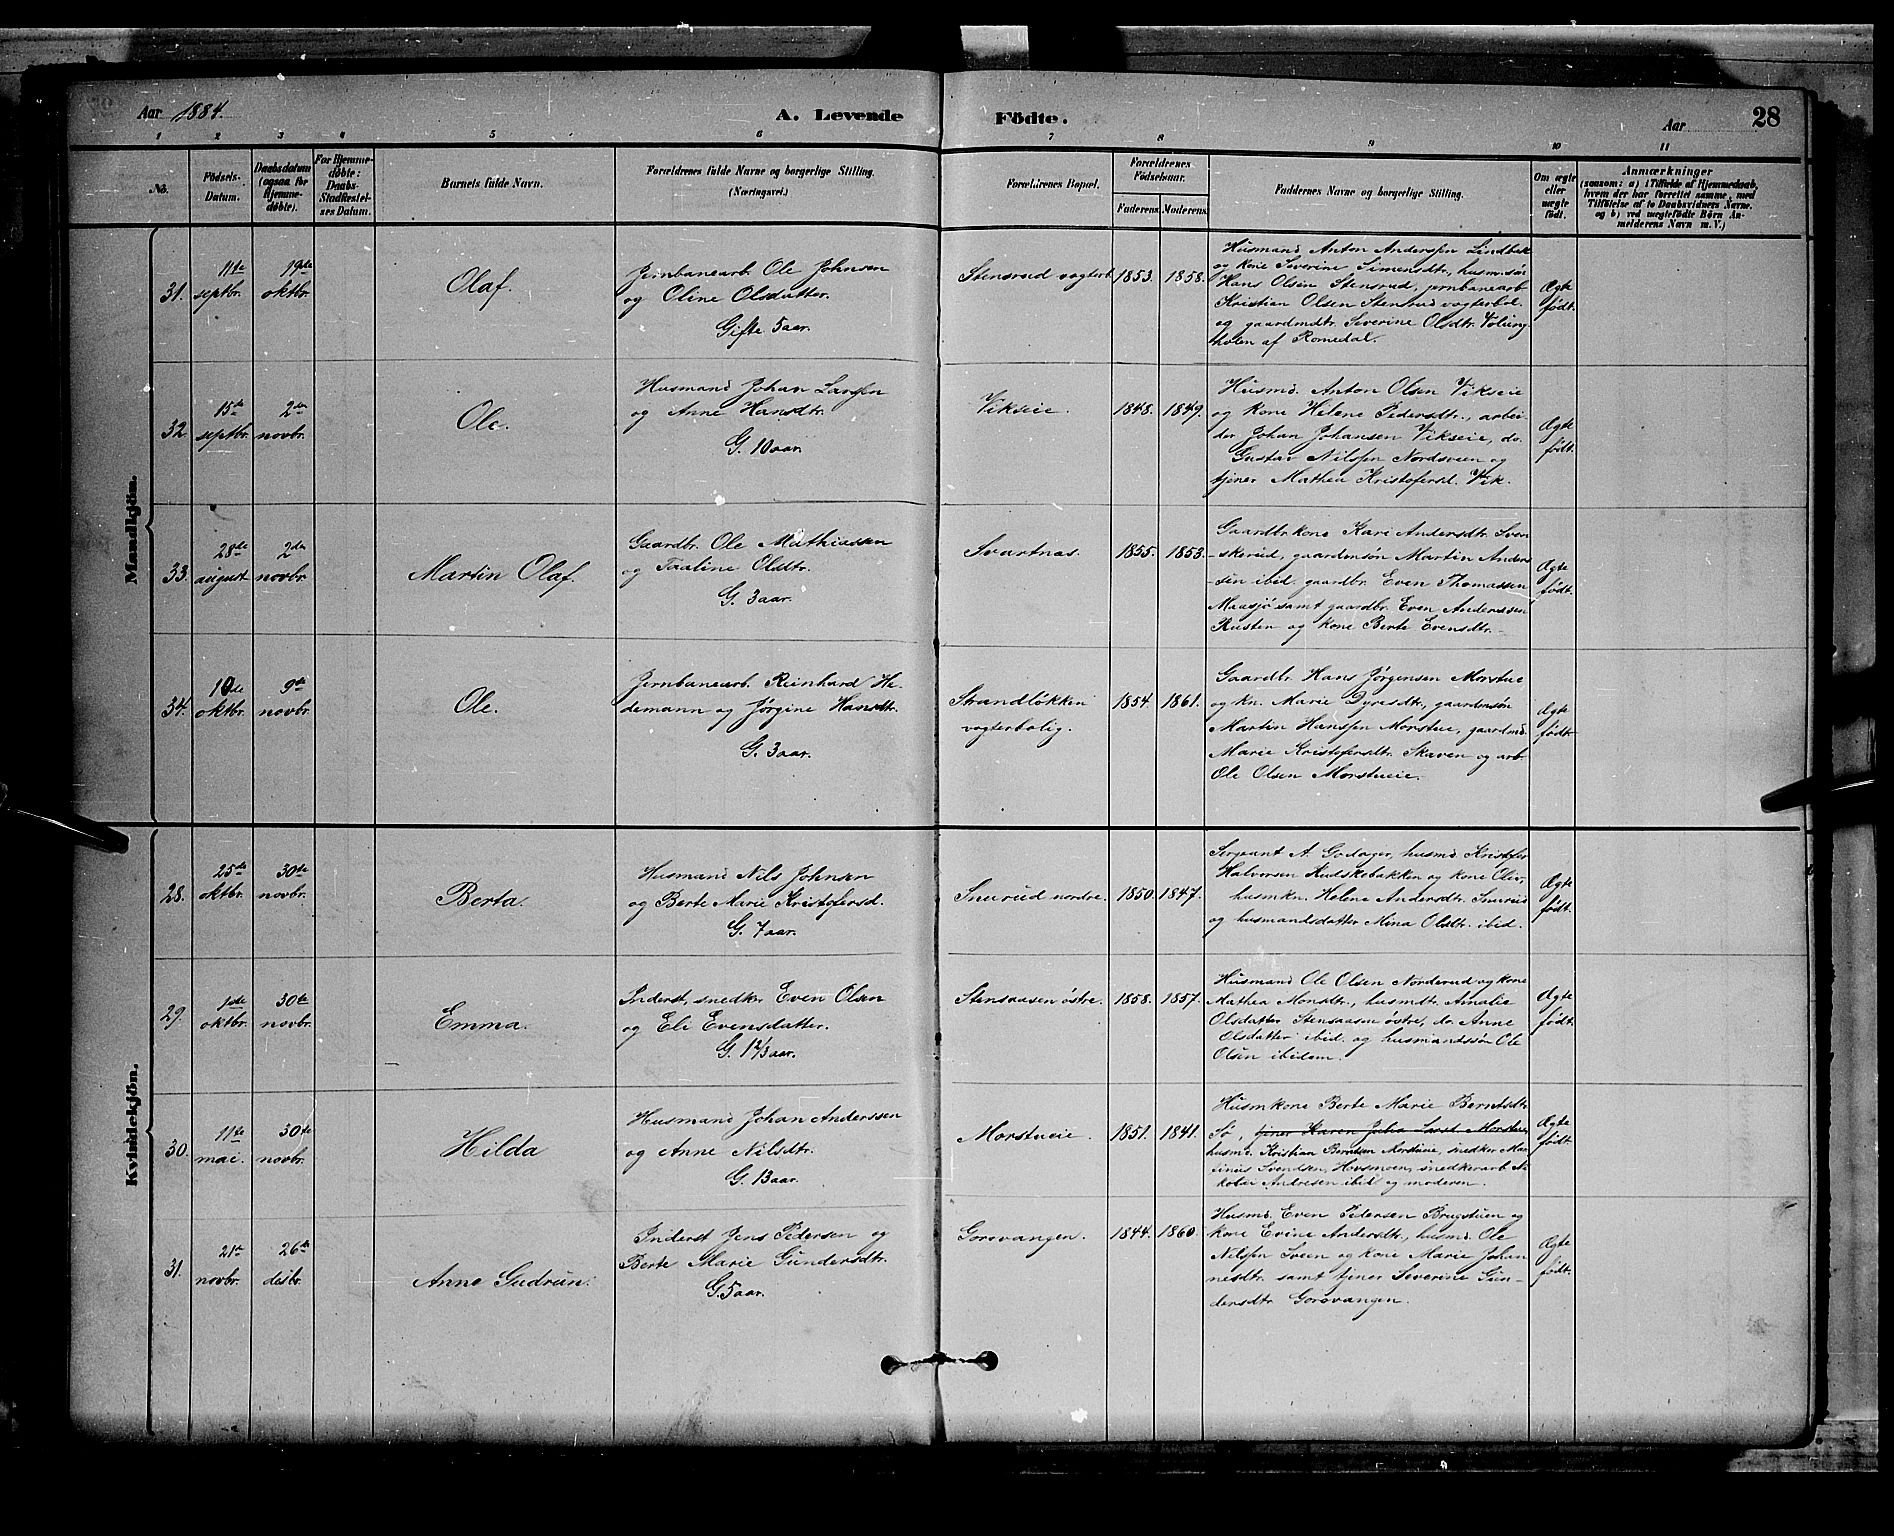 Aar 1884.
A. Levende Födte.
Aar
28
1 2 3 4 5 6 7 8 9 10 11
No.
Födsels-Datum.
Daabsdatum (ogsaa for Hjemme-döbte).
For Hjemme-döbte: Daabs-Stadfæstel-ses Datum.
Barnets fulde Navn.
Forældrenes fulde Navne og borgerlige Stilling.
(Næringsvei.)
Forældrenes Bopæl.
Forældrenes Födselsaar.
Faderens. Moderens.
Faddernes Navne og borgerlige Stilling.
Om ægte eller uægte födt.
Anmærkninger
(saasom: a) i Tilfælde af Hjemmedaab,
hvem der har forrettet samme, med
Tilföielse af to Daabsvidners Navne,
og b) ved uægtefödte Börn An-
melderens Navn m. V.)
Mandkjön.
31.
11te septbr.
19de oktbr.
Olaf.
Jernbanearb. Ole Johnsen
og Oline Olsdatter.
Gifte 5 aar.
Stensrud vogterb.
1853. 1858.
Husmand Anton Anderssen Lindbæk
og kone Severine Simensdtr., husm.søn
Hans Olsen Stensrud, jernbanearb.
Kristian Olsen Stensrud vogterbol.
og gaardmdtr. Severine Olsdtr.
af Romedal.
Ægte födt.
32.
15de septbr.
2den novbr.
Ole.
Husmand Johan Larssen
og Anne Hansdtr.
G. 10 aar.
Vikseie.
1848. 1849.
Husmd. Anton Olsen Vikseie
og kone Helene Pedersdtr., arbei-
der Johan Johansen Vikseie, do.
Gustav Nilssen Nordsveen og
tjener Mathea Kristofersd. Vik.
Ægte födt.
33.
28de august
2den novbr.
Martin Olaf.
Gaardbr. Ole Mathiassen
og Taaline Olsdtr.
G. 3 aar.
Svartnas.
1855. 1853.
Gaardbr.kone Kari Andersdtr. Sven-
skerud, gaardmsøn Martin Anders-
sen ibid. gaardbr. Even Thomassen
Maasjø samt gaardbr. Even Anderssen
Rusten og kone Berte Evensdtr.
Ægte födt.
34.
10de oktbr.
9de novbr.
Ole.
Jernbanearb. Reinhard He-
demann og Jørgine Hansdtr.
G. 3 aar.
Strandløkken
vogterbolig.
1854. 1861.
Gaardbr. Hans Jørgensen Morstue
og kn. Marie Dyresdtr., gaardmsøn
Martin Hanssen Morstue, gaardmd.
Marie Kristofersdtr. Skaven og arb.
Ole Olsen Morstueie.
Ægte födt.
Kvindekjön.
28.
25de oktbr.
30te novbr.
Berta.
Husmand Nils Johnsen
og Berte Marie Kristofersd.
G. 7 aar.
Snurud nordre.
1850. 1847.
Sergeant A. Godager, husmd. Kristofer
Halversen Kuskebakken og kone Oliv,
husmkn. Helene Andersdtr. Snurud
og husmandsdatter Mina Olsdtr. ibid.
Ægte födt.
29.
1ste oktbr.
30te novbr.
Emma.
Inderst, snedker Even Olsen
og Eli Evensdatter.
G. 1 2/3 aar.
Stensaasen østre.
1858. 1857.
Husmand Ole Olsen Norderud og kone
Mathea Monsdtr., husmdtr. Amalie
Olsdatter Stensaasen østre, do. Anne
Olsdatter ibid. og husmandssøn Ole
Olsen ibidem.
Ægte födt.
30.
11te mai.
30te novbr.
Hilda
Husmand Johan Anderssen
og Anne Nilsdtr.
G. 13 aar.
Morstueie.
1851. 1841.
Husmkone Berte Marie Berntsdtr.
Sø, tjener Karen Larsd. Morstue,
husmd. Kristian Berntsen Morstueie, snedker Mar-
tinus Svendsen, Hovsmoen, snedkerarb. Ja-
kob Andresen ibid. og moderen.
Ægte födt.
31.
21de novbr.
26de desbr.
Anne Gudrun.
Inderst Jens Pedersen og
Berte Marie Gundersdtr.
G. 5 aar.
Gorovangen.
1844. 1860.
Husmd. Even Pedersen Brugstuen og
kone Evine Andersdtr., husmd. Ole
Nilssen Sveen og kone Marie Johan-
nesdtr. samt tjener Severine Gun-
dersdtr. Gorovangen.
Ægte födt.